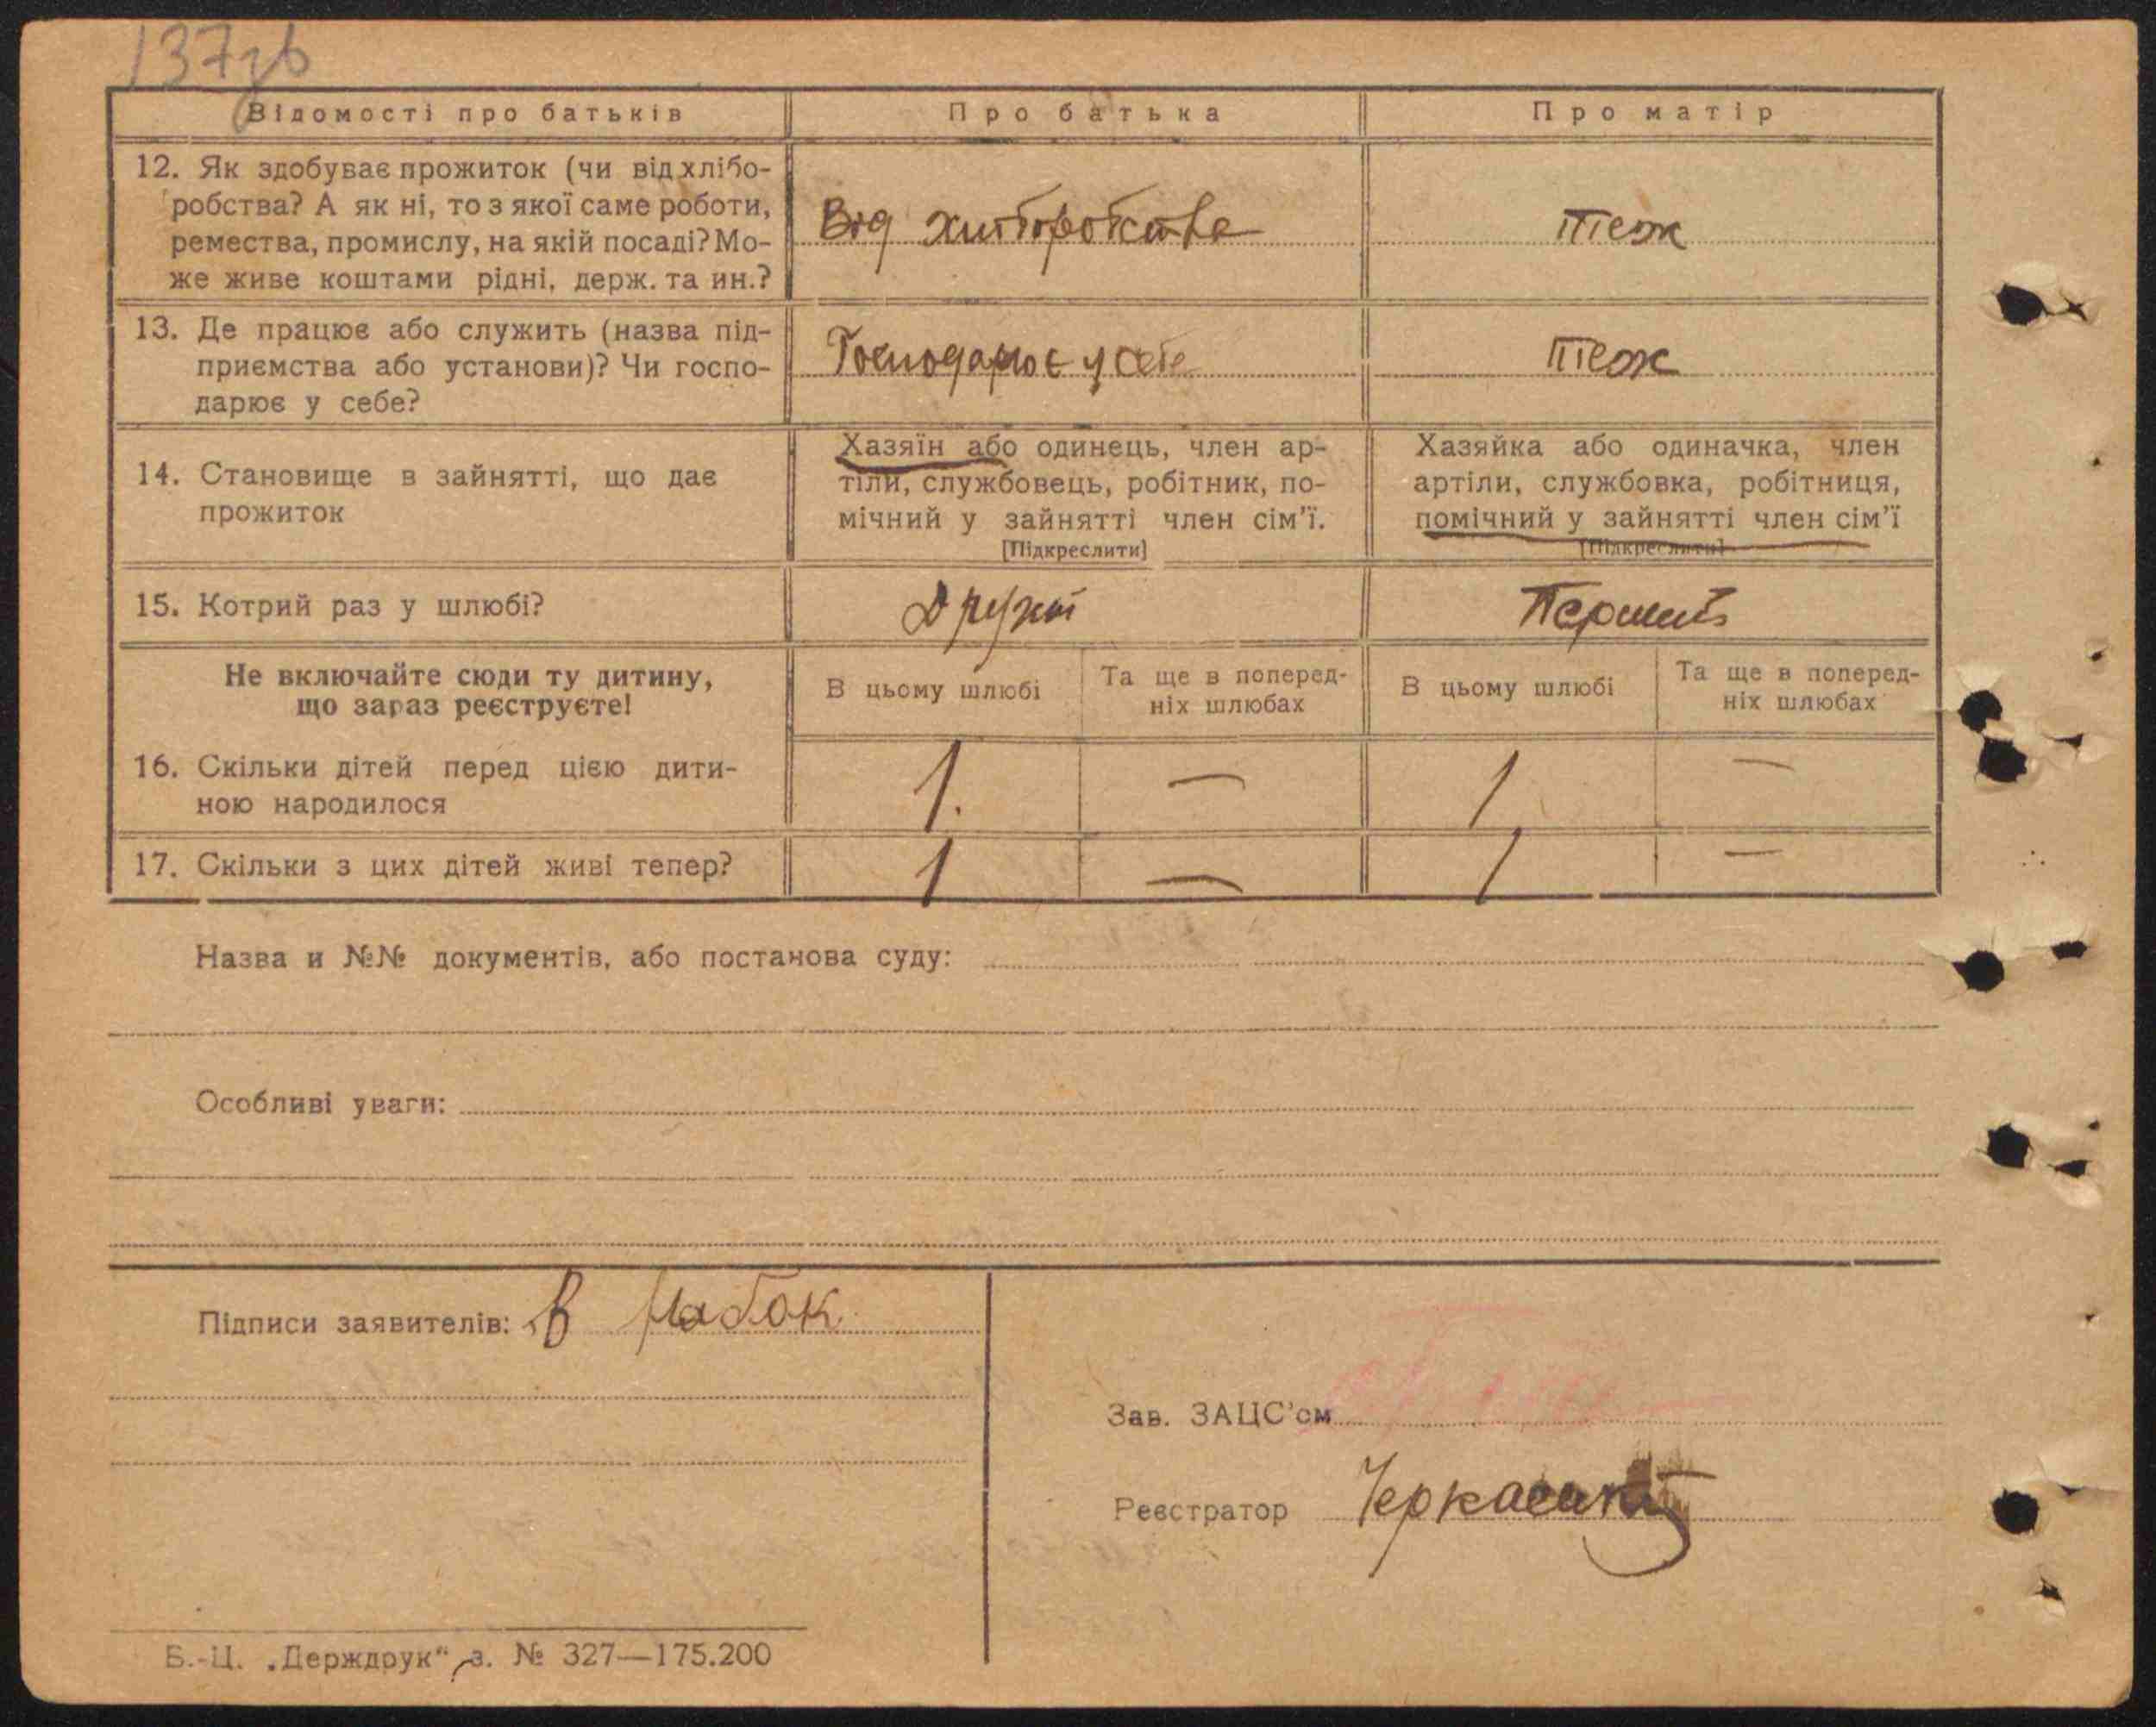 137зв
Відомості про батьків
Про батька
Про матір
12. Як здобуває прожиток (чи від хлібо-
робства? А як ні, то з якої саме роботи,
ремества, промислу, на якій посаді? Мо-
же живе коштами рідні, держ. та ин.?
Від хліборобства
теж
13. Де працює або служить (назва під-
приємства або установи)? Чи госпо-
дарює у себе?
Господарює у себе
теж
14. Становище в зайнятті, що дає
прожиток
Хазяїн або одинець, член ар-
тіли, службовець, робітник, по-
мічний у зайнятті член сім'ї.
[Підкреслити]
Хазяйка або одиначка, член
артіли, службовка, робітниця,
помічний у зайнятті член сім'ї
[Підкреслити]
15. Котрий раз у шлюбі?
Другий
Перший
Не включайте сюди ту дитину,
що зараз реєструєте!
В цьому шлюбі
Та ще в поперед-
ніх шлюбах
В цьому шлюбі
Та ще в поперед-
ніх шлюбах
16. Скільки дітей перед цією дити-
ною народилося
1. — 1 —
17. Скільки з цих дітей живі тепер?
1 — 1 —
Назва и №№ документів, або постанова суду:
Особливі уваги:
Підписи заявителів: В
Зав. ЗАЦС'ом
Реєстратор Черкаський
Б.-Ц. „Держдрук" з. № 327—175.200